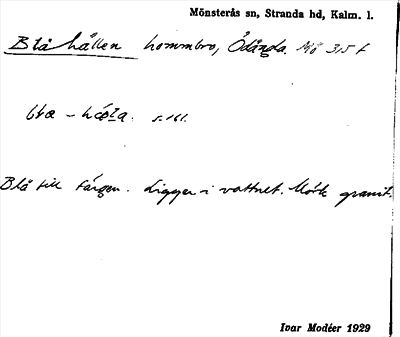 Mönsterås sn, Stranda hd, Kalm. l.
Blåhällen hommbro, Ödänga. Mö 315 f
s. 161.
Blå till färgen. Ligger i vattnet. Mörk granit.
Ivar Modéer 1929